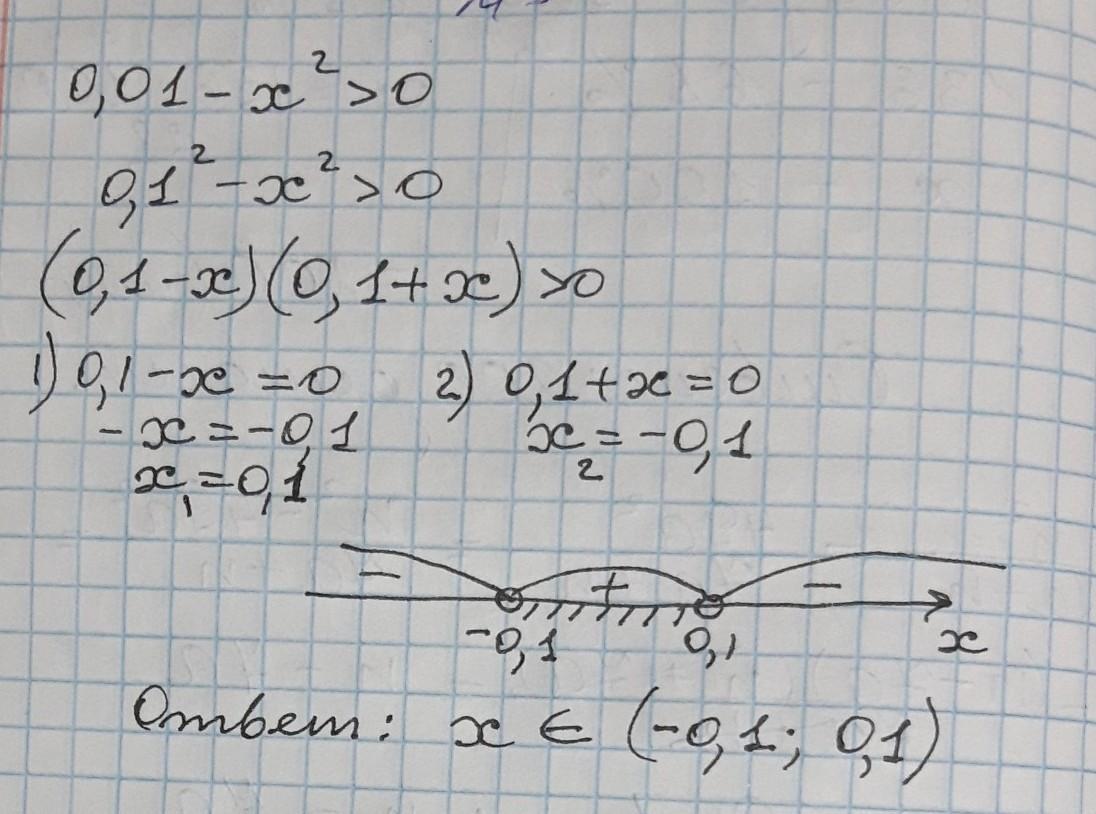 0,01 - x² > 0
0,1² - x² > 0
(0,1 - x)(0,1 + x) > 0
1) 0,1 - x = 0 2) 0,1 + x = 0
- x = -0,1 x₂ = -0,1
x₁ = 0,1
- + -
-0,1 0,1 x
Ответ: x ∈ (-0,1; 0,1)